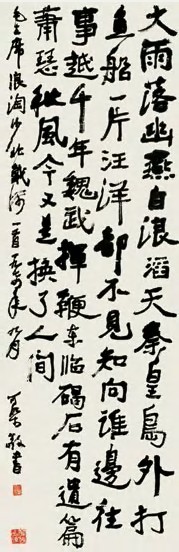 大雨落幽燕白浪滔天秦皇島外打
魚船一片汪洋都不見知向誰邊往
事越千年魏武揮鞭東臨碣石有遺篇
蕭瑟秋風今又是換了人间
毛主席浪淘沙北戴河一首 年九月
書